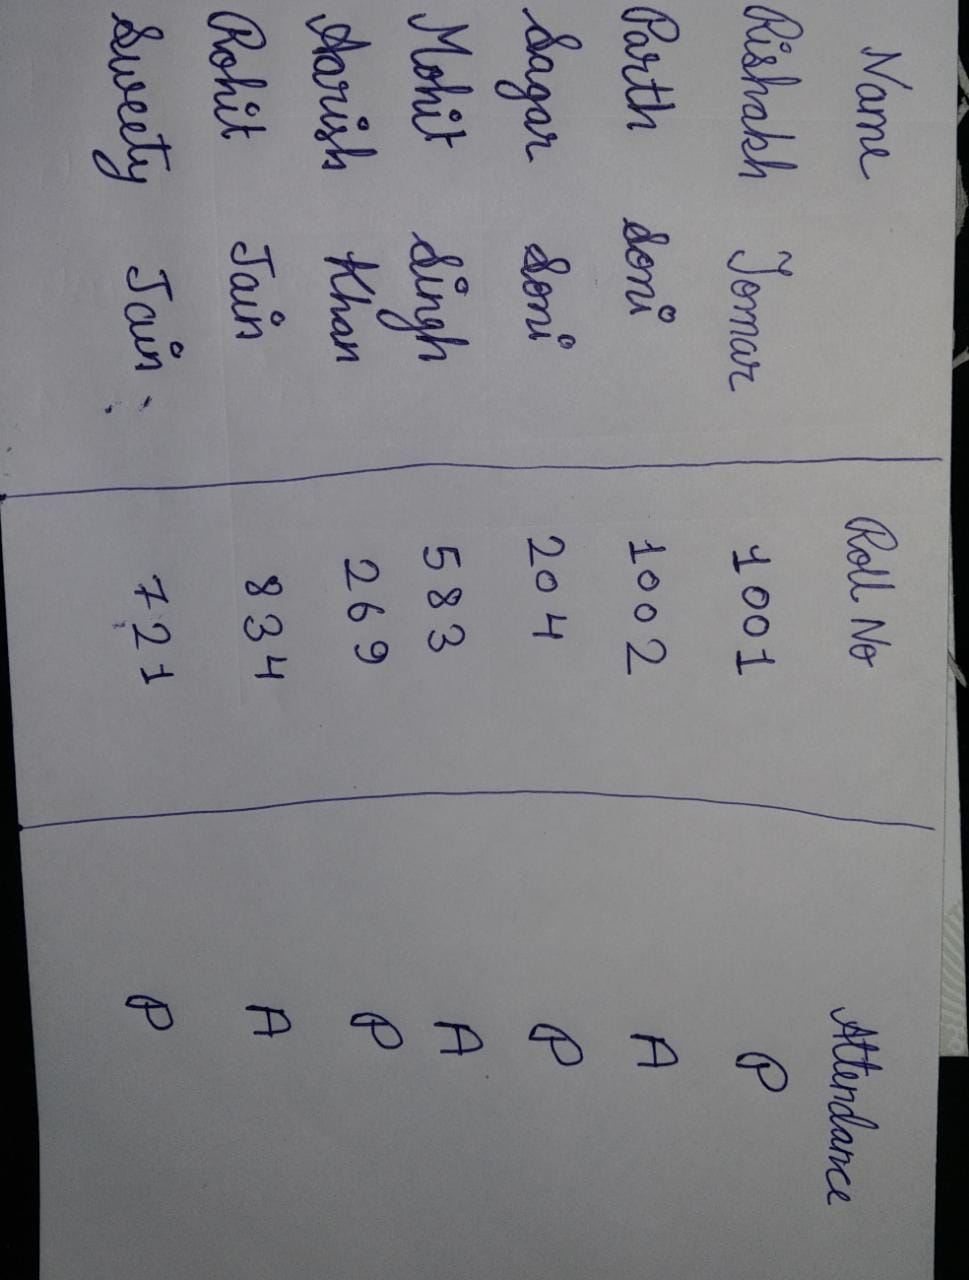 Name Roll No Attendance
Rishakh Tomar 1001 P
Parth Soni 1002 A
Sagar Soni 204 P
Mohit Singh 583 A
Aarish Khan 269 P
Rohit Jain 834 A
Sweety Jain 721 P